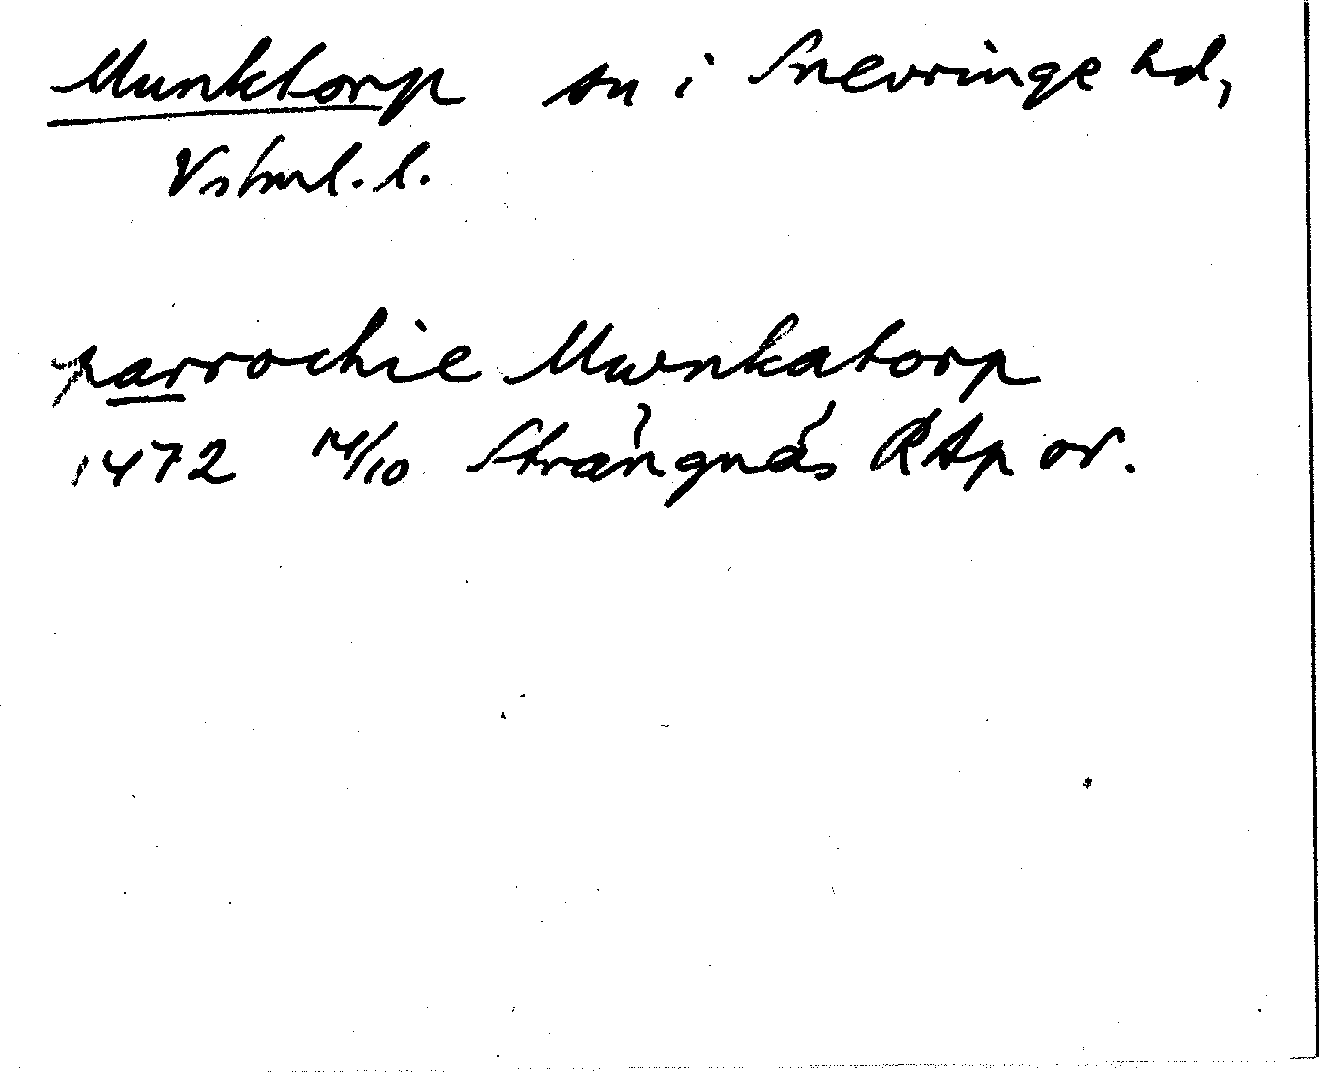 Munktorp sn i Snevringe hd,
Vstml. l.
parrochie Mwnkatorp
1472 14/10 Strängnäs RAp or.